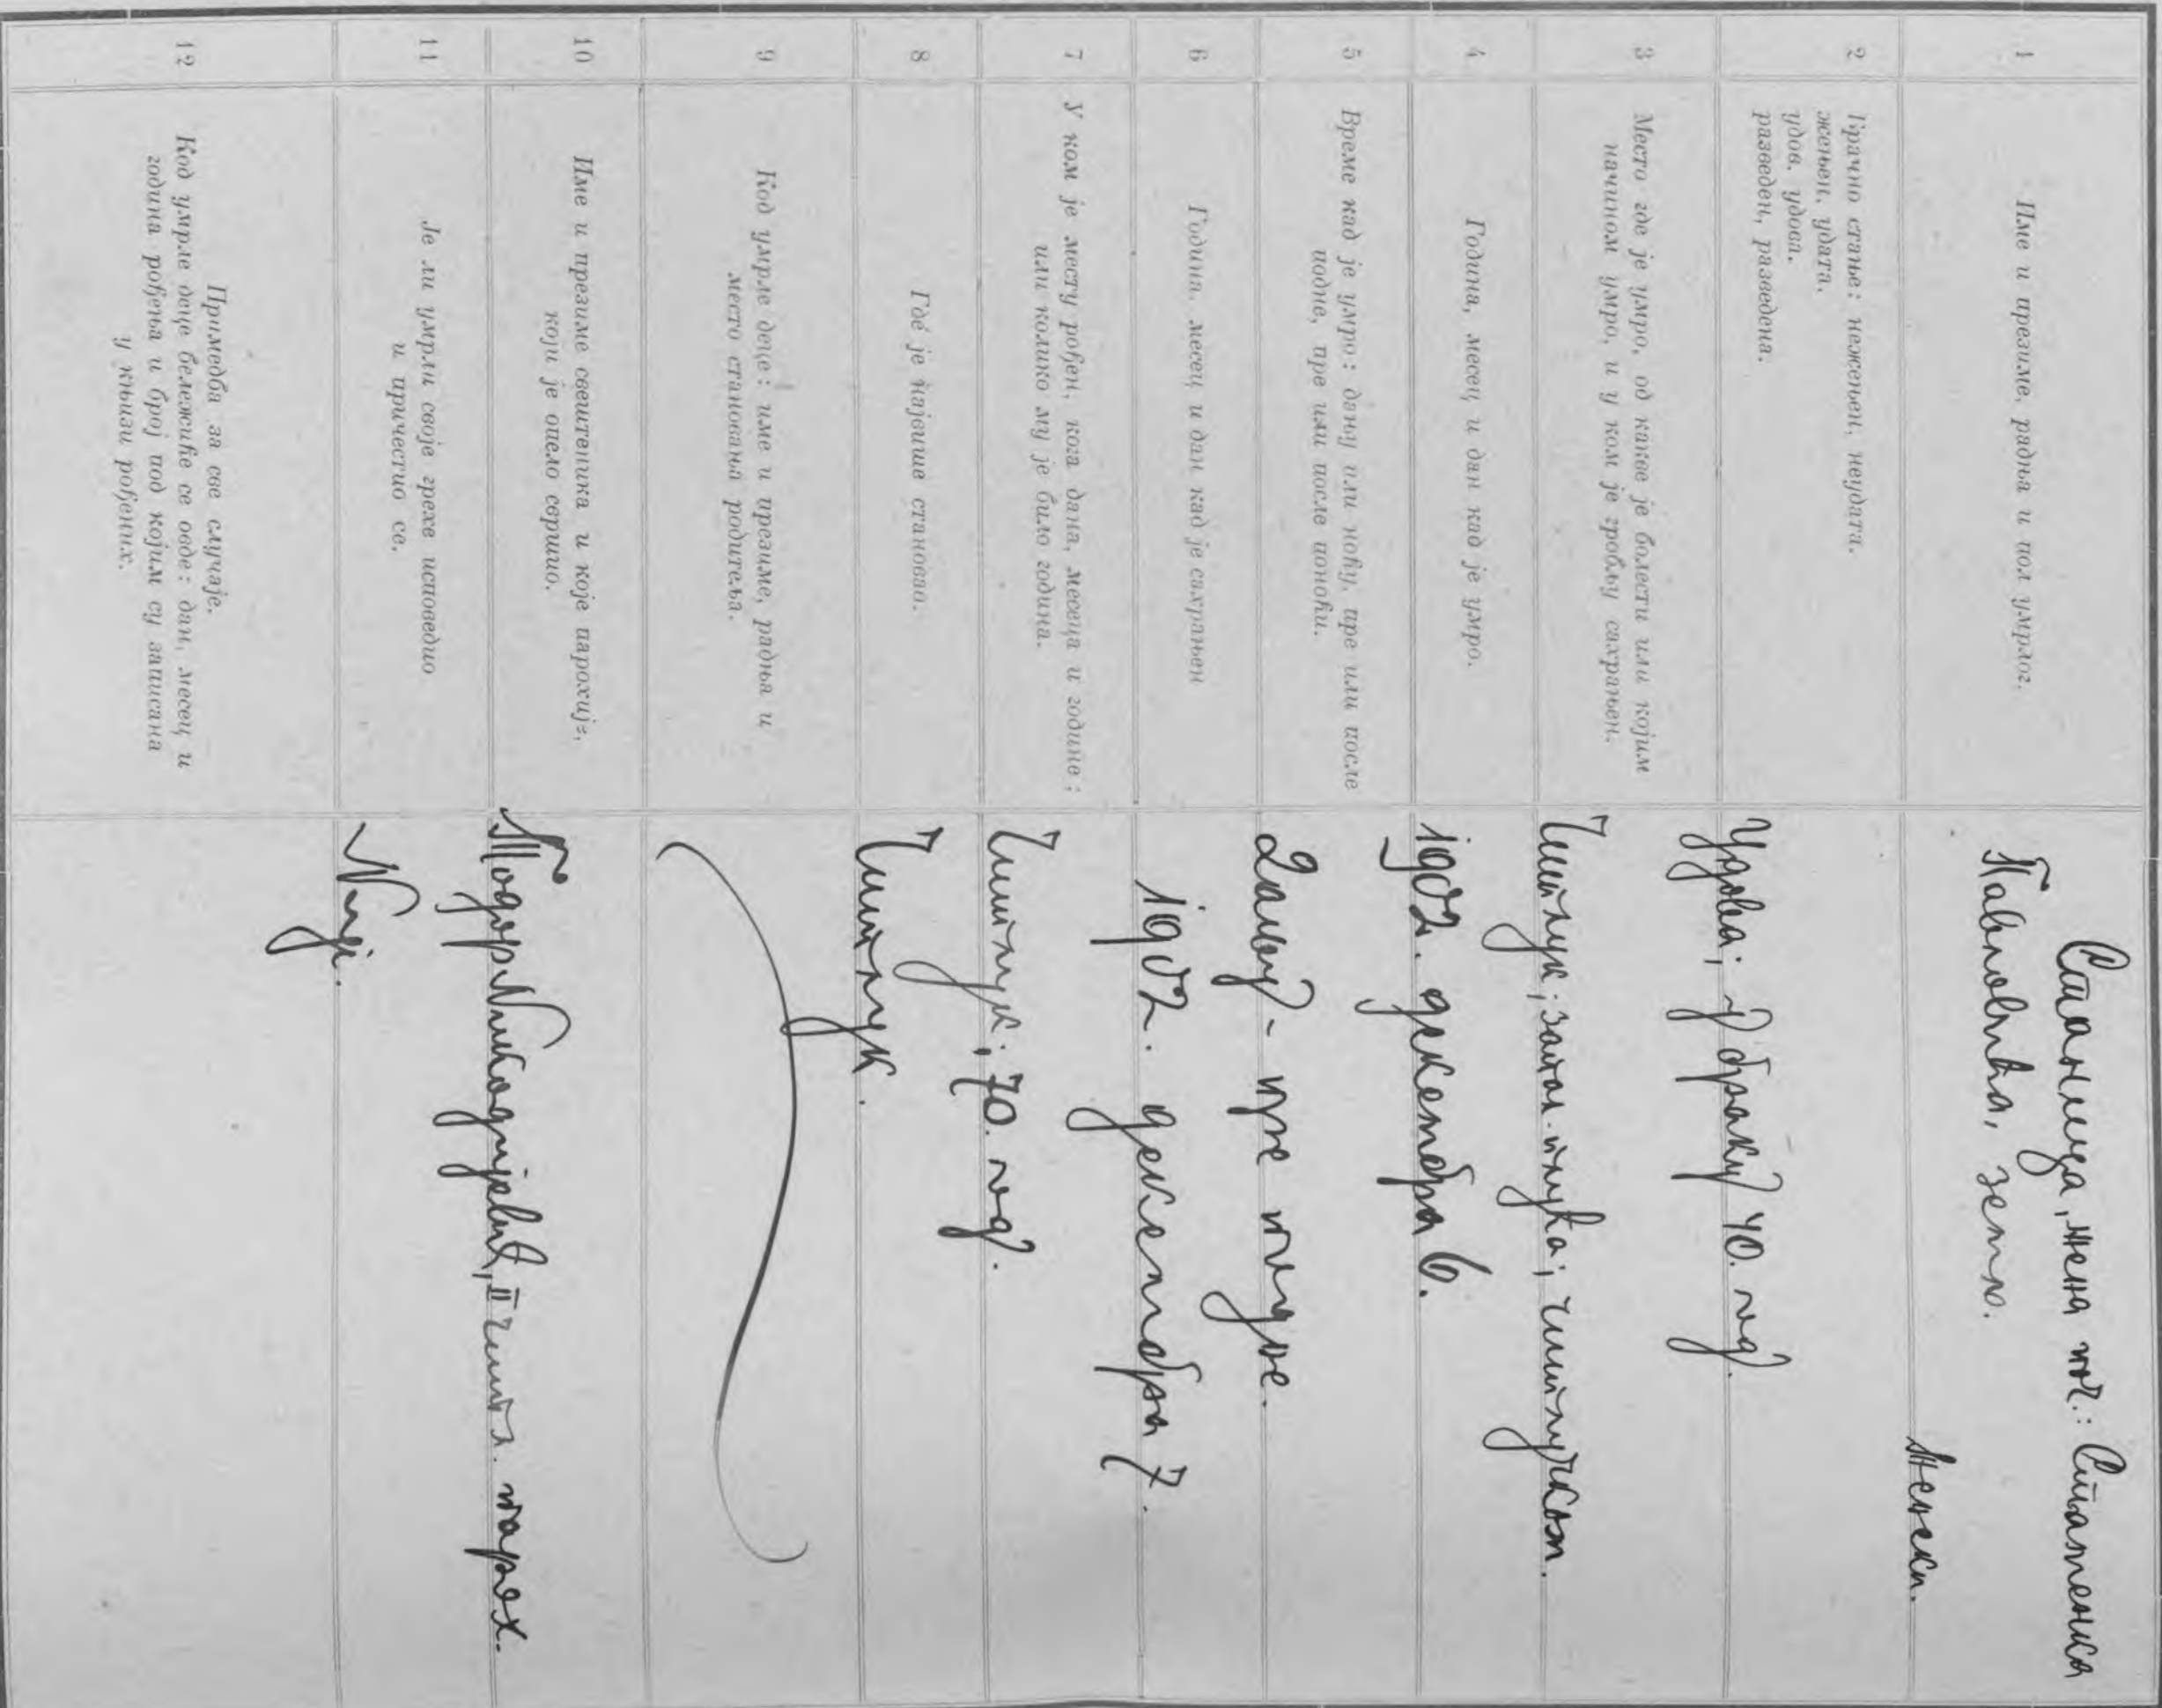 1
Име и презиме, радња и пол умрлог.
Станица, жена поч.: Стаменка
Павловића, земљ.
женски.
2
Брачно стање: нежењен, неудата.
жењен, удата.
удов, удова.
разведен, разведена.
Удова; у браку 40. год.
3
Место где је умро, од какве је болести или којим
начином умро, и у ком је гробљу сахрањен.
Чишлук; запал. плућа; чишлучком.
4
Година, месец и дан кад је умро.
1902. декембра 6.
5
Време кад је умро: дању или ноћу, пре или после
подне, пре или после поноћи.
Дању - пре подне.
6
Година, месец и дан кад је сахрањен
1902. декембра 7.
7
У ком је месту рођен, кога дана, месеца и године;
или колико му је било година.
Чишлук; 70. год.
8
Где је највише становао.
Чишлук.
9
Код умрле деце: име и презиме, радња и
место становања родитеља.
10
Име и презиме свештеника и које парохије,
који је опело свршио.
Тодор Никодијевић, II чишл. парох.
11
Је ли умрли своје грехе исповедио
и причестио се.
Није.
12
Примедба за све случаје.
Код умрле деце бележиће се овде: дан, месец и
година рођења и број под којим су записана
у књизи рођених.